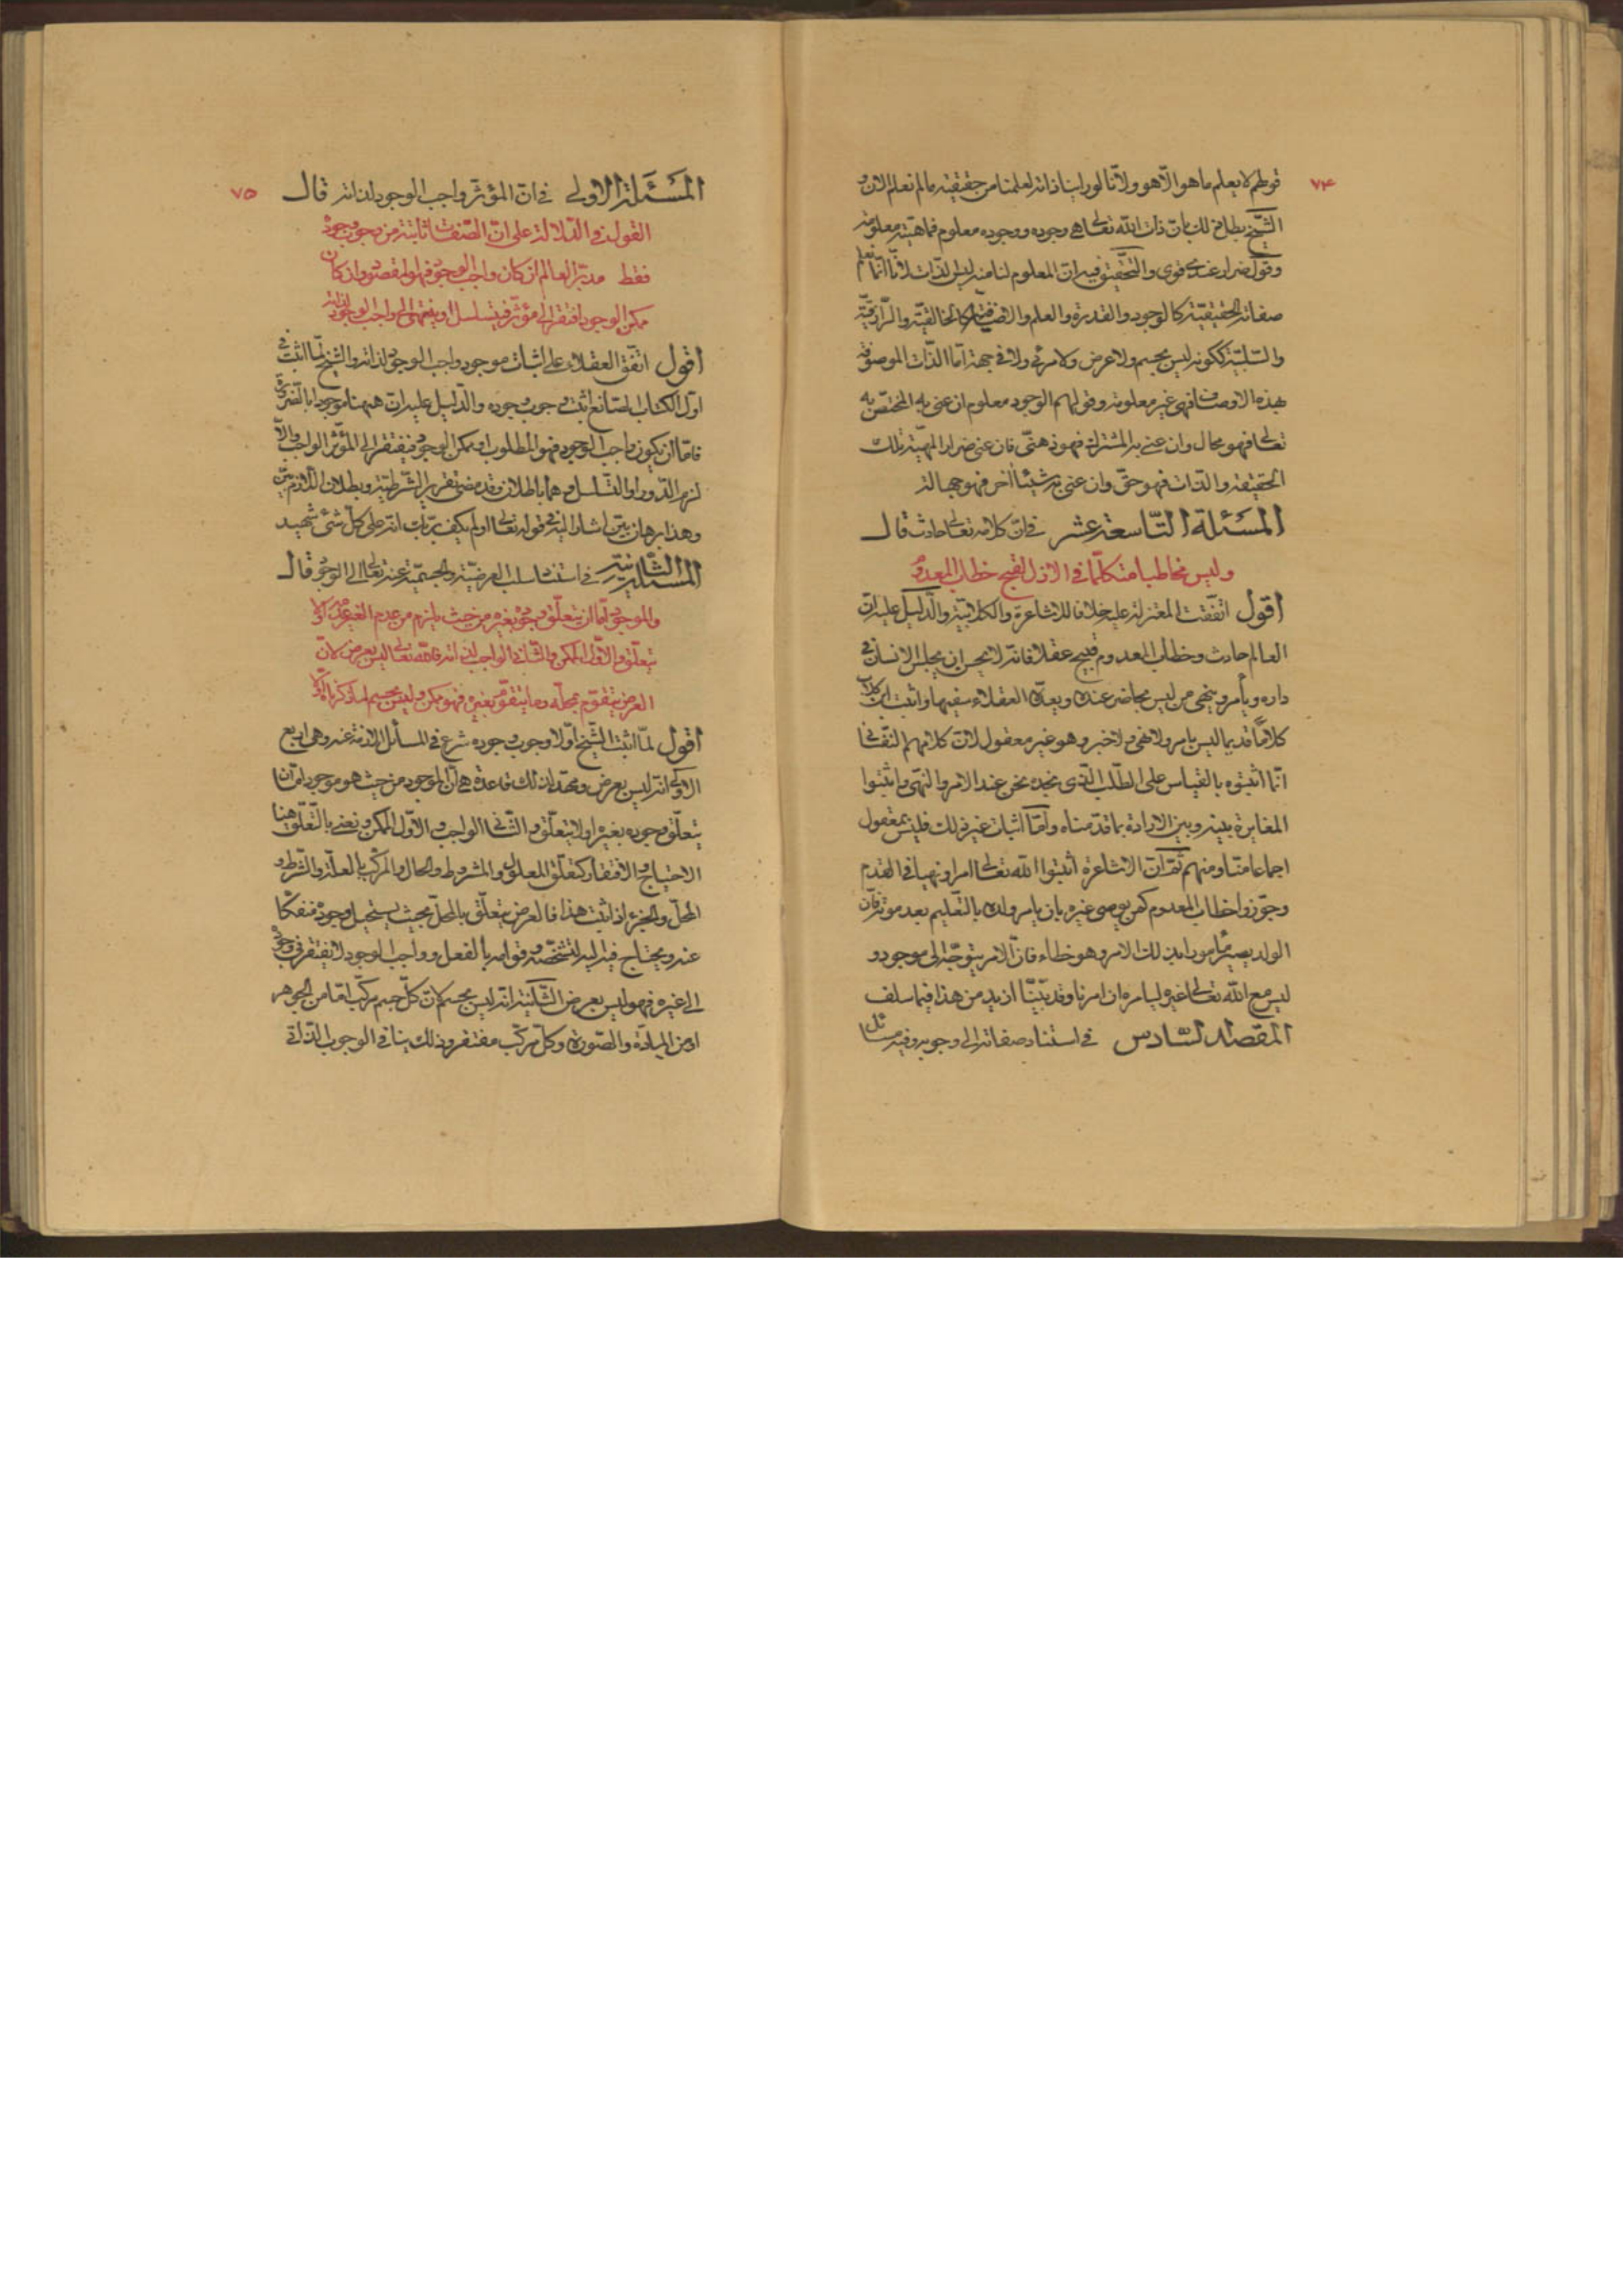 ٧۴
قولهم لا يعلم ما هو الّا هو ولانّا لو راينا ذاته لعلمنا من حقيقته ما لم نعلم الان و
الشّيخ بطل ذلك بانّ ذات اللّه تعالى هى وجوده ووجوده معلوم فماهيّته معلومة
وقول ضرار عندى قوى والتّحقيق فيه انّ المعلوم لنا منه ليس الذّات لانّا انّما نعلم
صفاته الحقيقيّة كالوجود والقدرة والعلم والاضافيّة كالخالقيّة والرّازقيّة
والسّلبيّة ككونه ليس بجسم ولا عرض ولا مرئى ولا فى جهة امّا الذّات الموصوفة
بهذه الاوصاف فهى غير معلومة وقولهم الوجود معلوم ان عنى به المختصّ به
تعالى فهو محال وان عنى به المشترك فهو ذهنّى فان عنى ضرار بالمهيّة تلك
الحقيقة والذات فهو حقّ وان عنى به شيئاً اخر فهو جهالة
المسئلة التّاسعة عشر فى انّ كلامه تعالى حادث قال
وليس مخاطبا متكلّما فى الازل لقبح خطاب المعدوم
اقول اتّفقت المعتزلة عليه خلافا للاشاعرة والكلابيّة والدّليل عليه انّ
العالم حادث وخطاب المعدوم قبيح عقلا فانّه لا يحسن ان يجلس الانسان فى
داره ويأمر وينهى من ليس بحاضر عنده ويعدّه العقلاء سفيها واثبت ابن كلاب
كلاماً قديما ليس بامر ولا نهى ولا خبر وهو غير معقول لانّ كلامهم النّفسانى
انّما اثبتوه بالقياس على الطّلب الّذى نجده نحن عند الامر والنهّى واثبتوا
المغايرة بينه وبين الارادة بما قدّمناه وامّا اثبات غير ذلك فليس بمعقول
اجماعا منّا ومنهم ثمّ انّ الاشاعرة اثبتوا اللّه تعالى امرا ونهيا فى القدم
وجوّزوا خطاب المعدوم كمن يوصى غيره بان يامر ولده بالتّعليم بعد موته فانّ
الولد يصير مأمورا بذلك الامر وهو خطاء فانّ الامر يتوجّه الى موجود و
ليس مع اللّه تعالى غيره ليامره ان امرنا وقد بيّنّا ازيد من هذا فيما سلف
المقصد السّادس فى استناد صفاته الى وجوبه وفيه مسائل
٧٥
المسئلة الاولى فى انّ المؤثّر واجب الوجود لذاته قال
القول فى الدّلالة على انّ الصّفات ثابتة من وجوب وجوده
فقط مدبّر العالم ان كان واجب الوجود فهو المقصود وان كان
ممكن الوجود افتقر الى مؤثّر فيتسلسل او ينتهى الى واجب الوجود لذاته
اقول اتّفق العقلاء على اثبات موجود واجب الوجود لذاته والشيخ لمّا اثبت فى
اوّل الكتاب الصّانع اثبت وجوب وجوده والدّليل عليه انّ ههنا موجودا بالضّرورة
فامّا ان يكون واجب الوجود فهو المطلوب او ممكن الوجود فيفتقر الى المؤثّر الواجب والّا
لزم الدّور او التّسلسل وهما باطلان وقد مضى تقرير الشّرطيّة وبطلان اللّازم بيّن
وهذا برهان بيّن اشار اليه فى قوله تعالى اولم يكف بربّك انّه على كلّ شئ شهيد
المسئلة الثّانية فى استناد سلب العرضيّة والجسميّة عنه تعالى الى الوجوب قال
والموجود امّا ان يتعلّق وجوده بغيره من حيث يلزم من عدم الغير عدمه او لا
يتعلّق والاوّل الممكن والثّانى الواجب لذاته فاللّه تعالى ليس بعرض لانّ
العرض يتقوّم بمحلّه وما يتقوّم بغيره فهو ممكن وليس بجسم لما ذكرنا اوّلا
اقول لمّا اثبت الشّيخ اوّلا وجوب وجوده شرع فى المسائل اللازمة عنه وهى اربع
الاولى انّه ليس بعرض ومهّد لذلك قاعدة هى انّ الموجود من حيث هو موجود امّا ان
يتعلّق وجوده بغيره او لا يتعلّق والثّانى الواجب والاوّل الممكن ونعنى بالتّعلّق هنا
الاحتياج والافتقار كتعلّق المعلول والمشروط والحال والمركّب بالعلّة والشّرط و
المحلّ والجزء اذا ثبت هذا فالعرض يتعلّق بالمحلّ بحيث يستحيل وجوده منفكّا
عنه ويحتاج فيه اليه لتشخّصه وقوامه بالفعل وواجب الوجود لا يفتقر فى وجوده
الى غيره فهو ليس بعرض الثّانية انّه ليس بجسم لانّ كلّ جسم مركّب امّا من الجوهر
او من المادّة والصّورة وكلّ مركّب مفتقر وذلك ينافى الوجوب الذّاتى